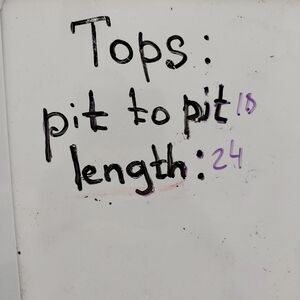 Tops:
pit to pit 18
length: 24